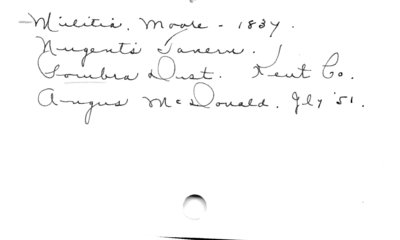 Militia. Moore - 1837.
Nugent's Tavern.
Sombra Dist. Kent Co.
Angus McDonald. Jly '51.